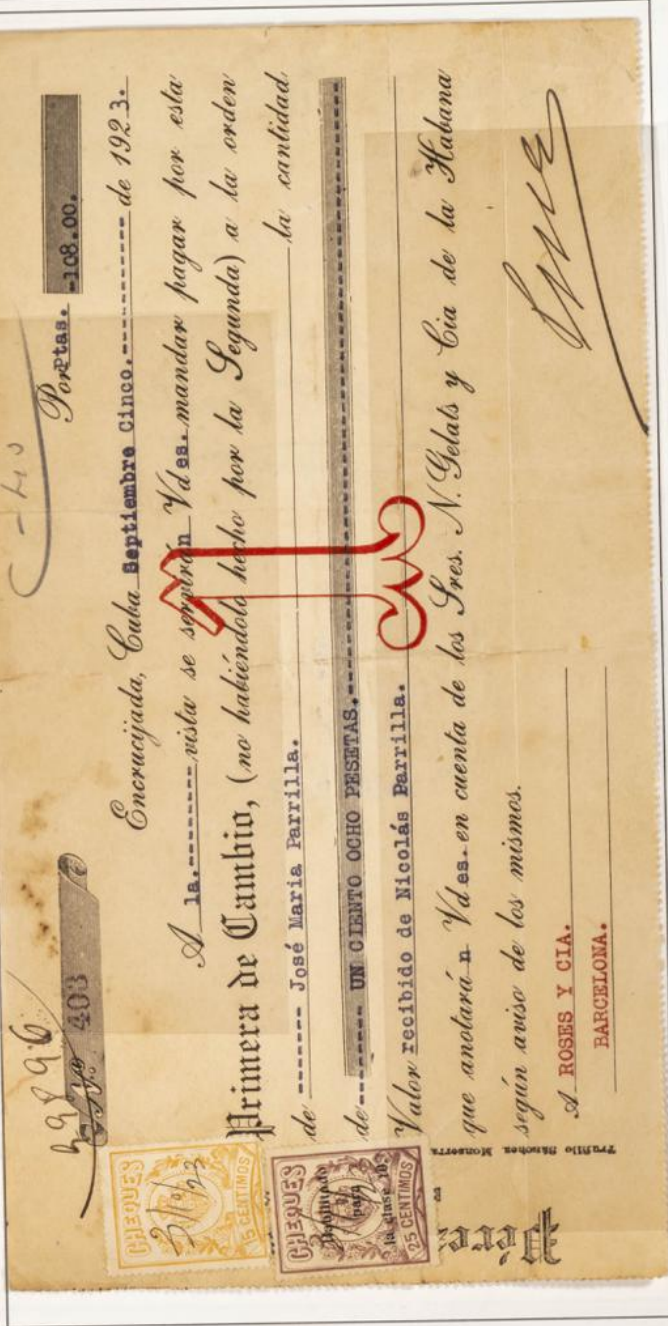 39896
403
Por Ptas. -108.00.
Encrucijada, Cuba Septiembre Cinco.----------- de 1923.
A la.--------- vista se servirán Vdes. mandar pagar por esta
Primera de Cambio, (no habiéndolo hecho por la Segunda) a la orden
de ------- José Maria Parrilla. la cantidad
de -------- UN CIENTO OCHO PESETAS.
Valor recibido de Nicolás Parrilla.
que anotarán Vdes. en cuenta de los Sres. N. Gelats y Cia de la Habana
según aviso de los mismos.
A ROSES Y CIA.
BARCELONA.
CHEQUES
3/10/23
5 CENTIMOS
CHEQUES
Habilitado
para
la clase 10ª
25 CENTIMOS
Pérez
Trujillo Sánchez Monserra